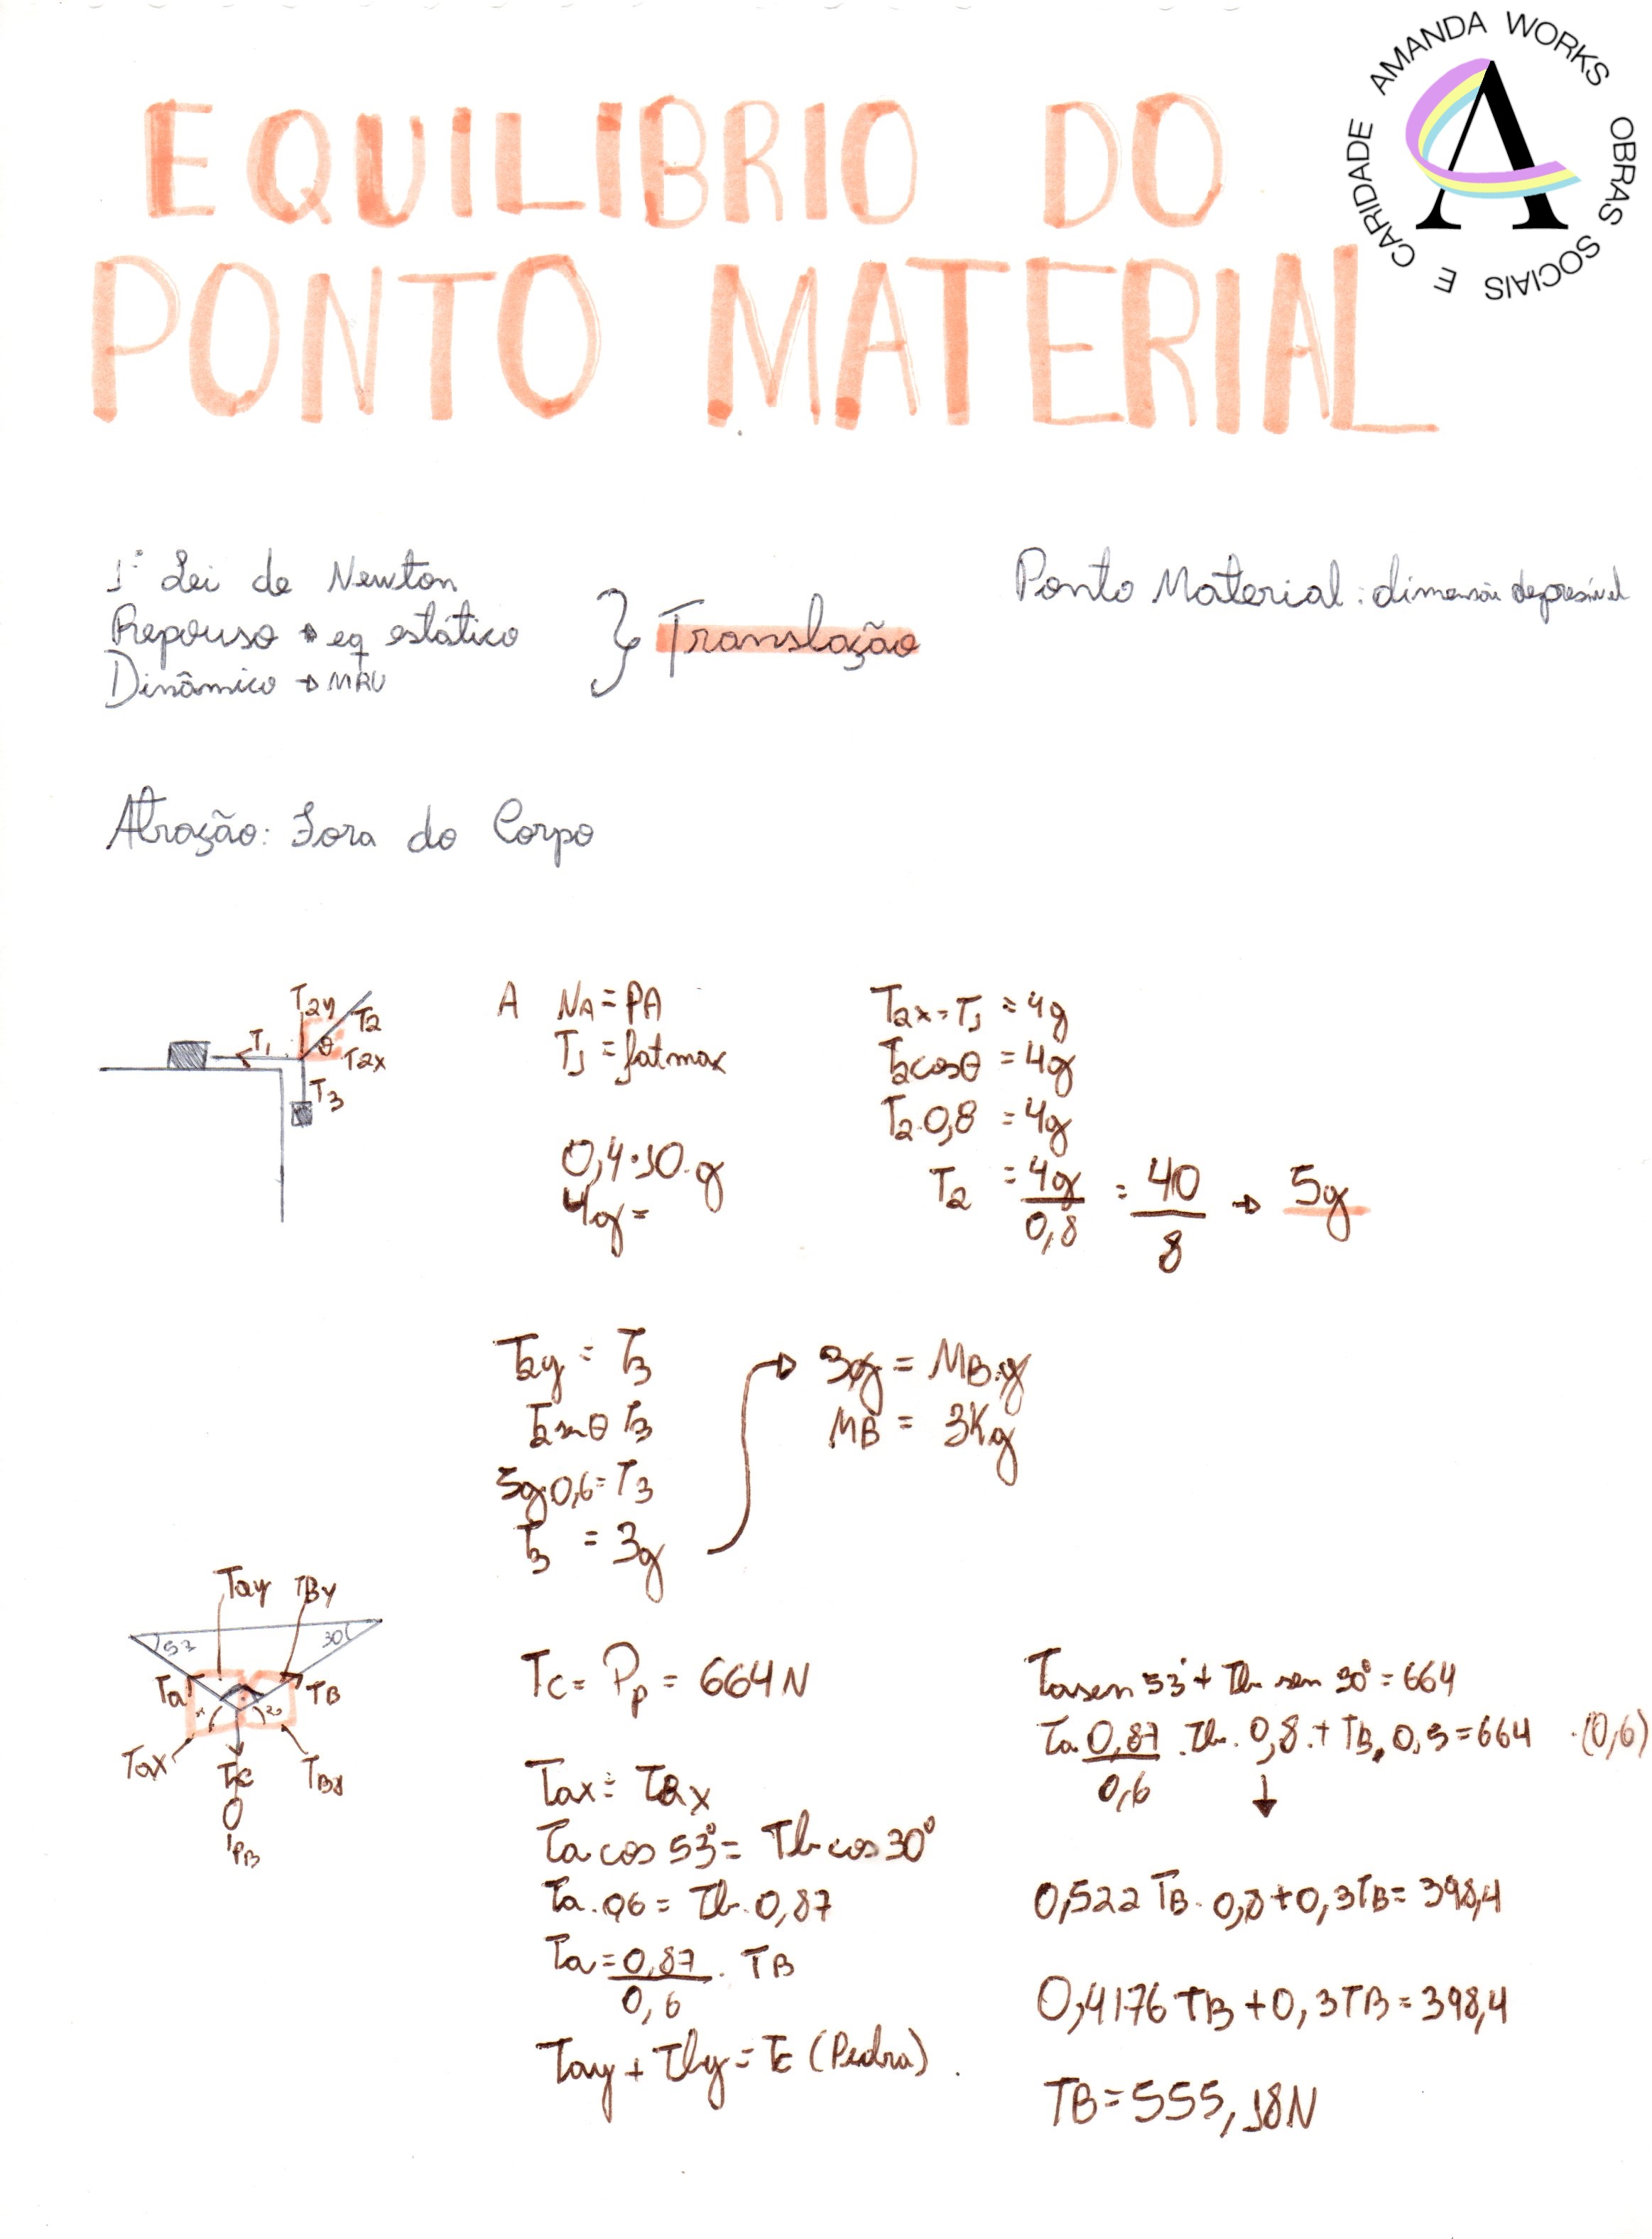 AMANDA WORKS OBRAS SOCIAIS E CARIDADE
A
EQUILIBRIO DO
PONTO MATERIAL
1ª Lei de Newton
Repouso → eq estático
Dinâmico → MRU
} Translação
Ponto Material: dimensão
Atração: Fora do Corpo
T2y
T2
T1
θ
T2x
T3
A NA = PA
T1 = fatmax
0,4·10·g
4g =
T2x = T1 = 4g
T2cosθ = 4g
T2·0,8 = 4g
T2 = 4g/0,8 = 40/8 → 5g
T2y = T3
T2senθ T3
5g·0,6 = T3
T3 = 3g
→ 3g = MB·g
MB = 3Kg
Tay TBy
53 30
Ta TB
Tax Tc TBx
PB
Tc = Pp = 664N
Tax = TBx
Ta cos 53° = Tb cos 30°
Ta·06 = Tb·0,87
Ta = 0,87/0,6 · TB
Tay + Tby = Tc (Pedra).
Ta sen 53° + Tb sen 30° = 664
Ta 0,87/0,6 · Tb · 0,8 + TB · 0,5 = 664 ·(0,6)
↓
0,522 TB · 0,8 + 0,3TB = 398,4
0,4176 TB + 0,3TB = 398,4
TB = 555,18N